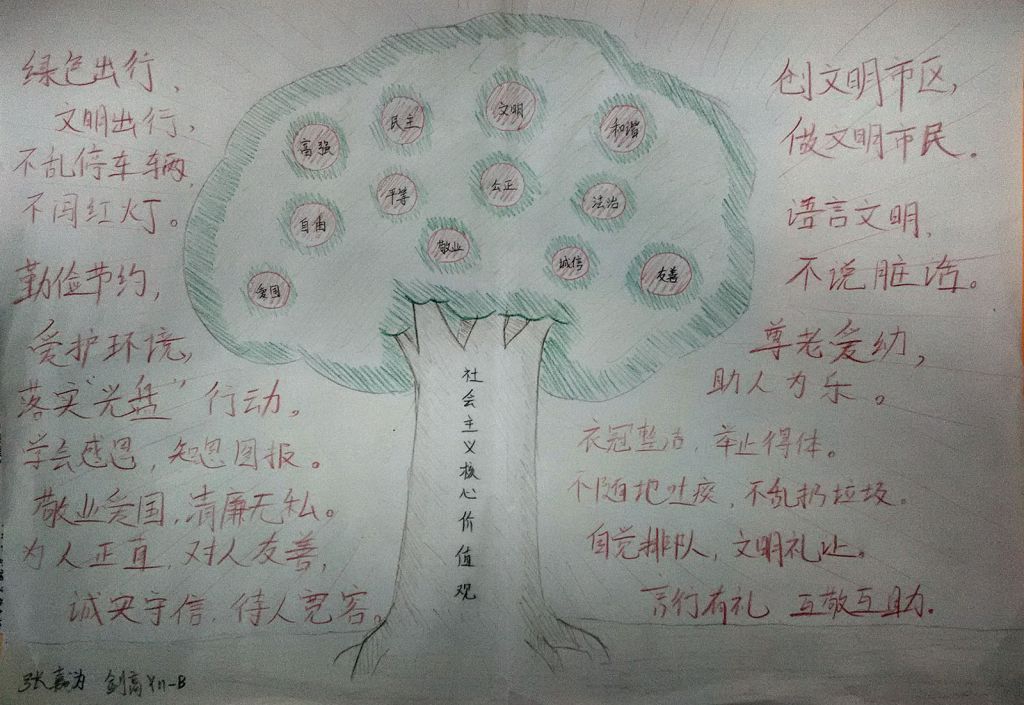 绿色出行，
文明出行，
不乱停车辆，
不闯红灯。
勤俭节约，
爱护环境，
落实“光盘”行动。
学会感恩，知恩图报。
敬业爱国，清廉无私。
为人正直，对人友善，
诚实守信，待人宽容。
富强
民主
文明
和谐
自由
平等
公正
法治
爱国
敬业
诚信
友善
社会主义核心价值观
创文明市区，
做文明市民。
语言文明，
不说脏话。
尊老爱幼，
助人为乐。
衣冠整洁，举止得体。
不随地吐痰，不乱扔垃圾。
自觉排队，文明礼让。
言行有礼 互敬互助.
张嘉为